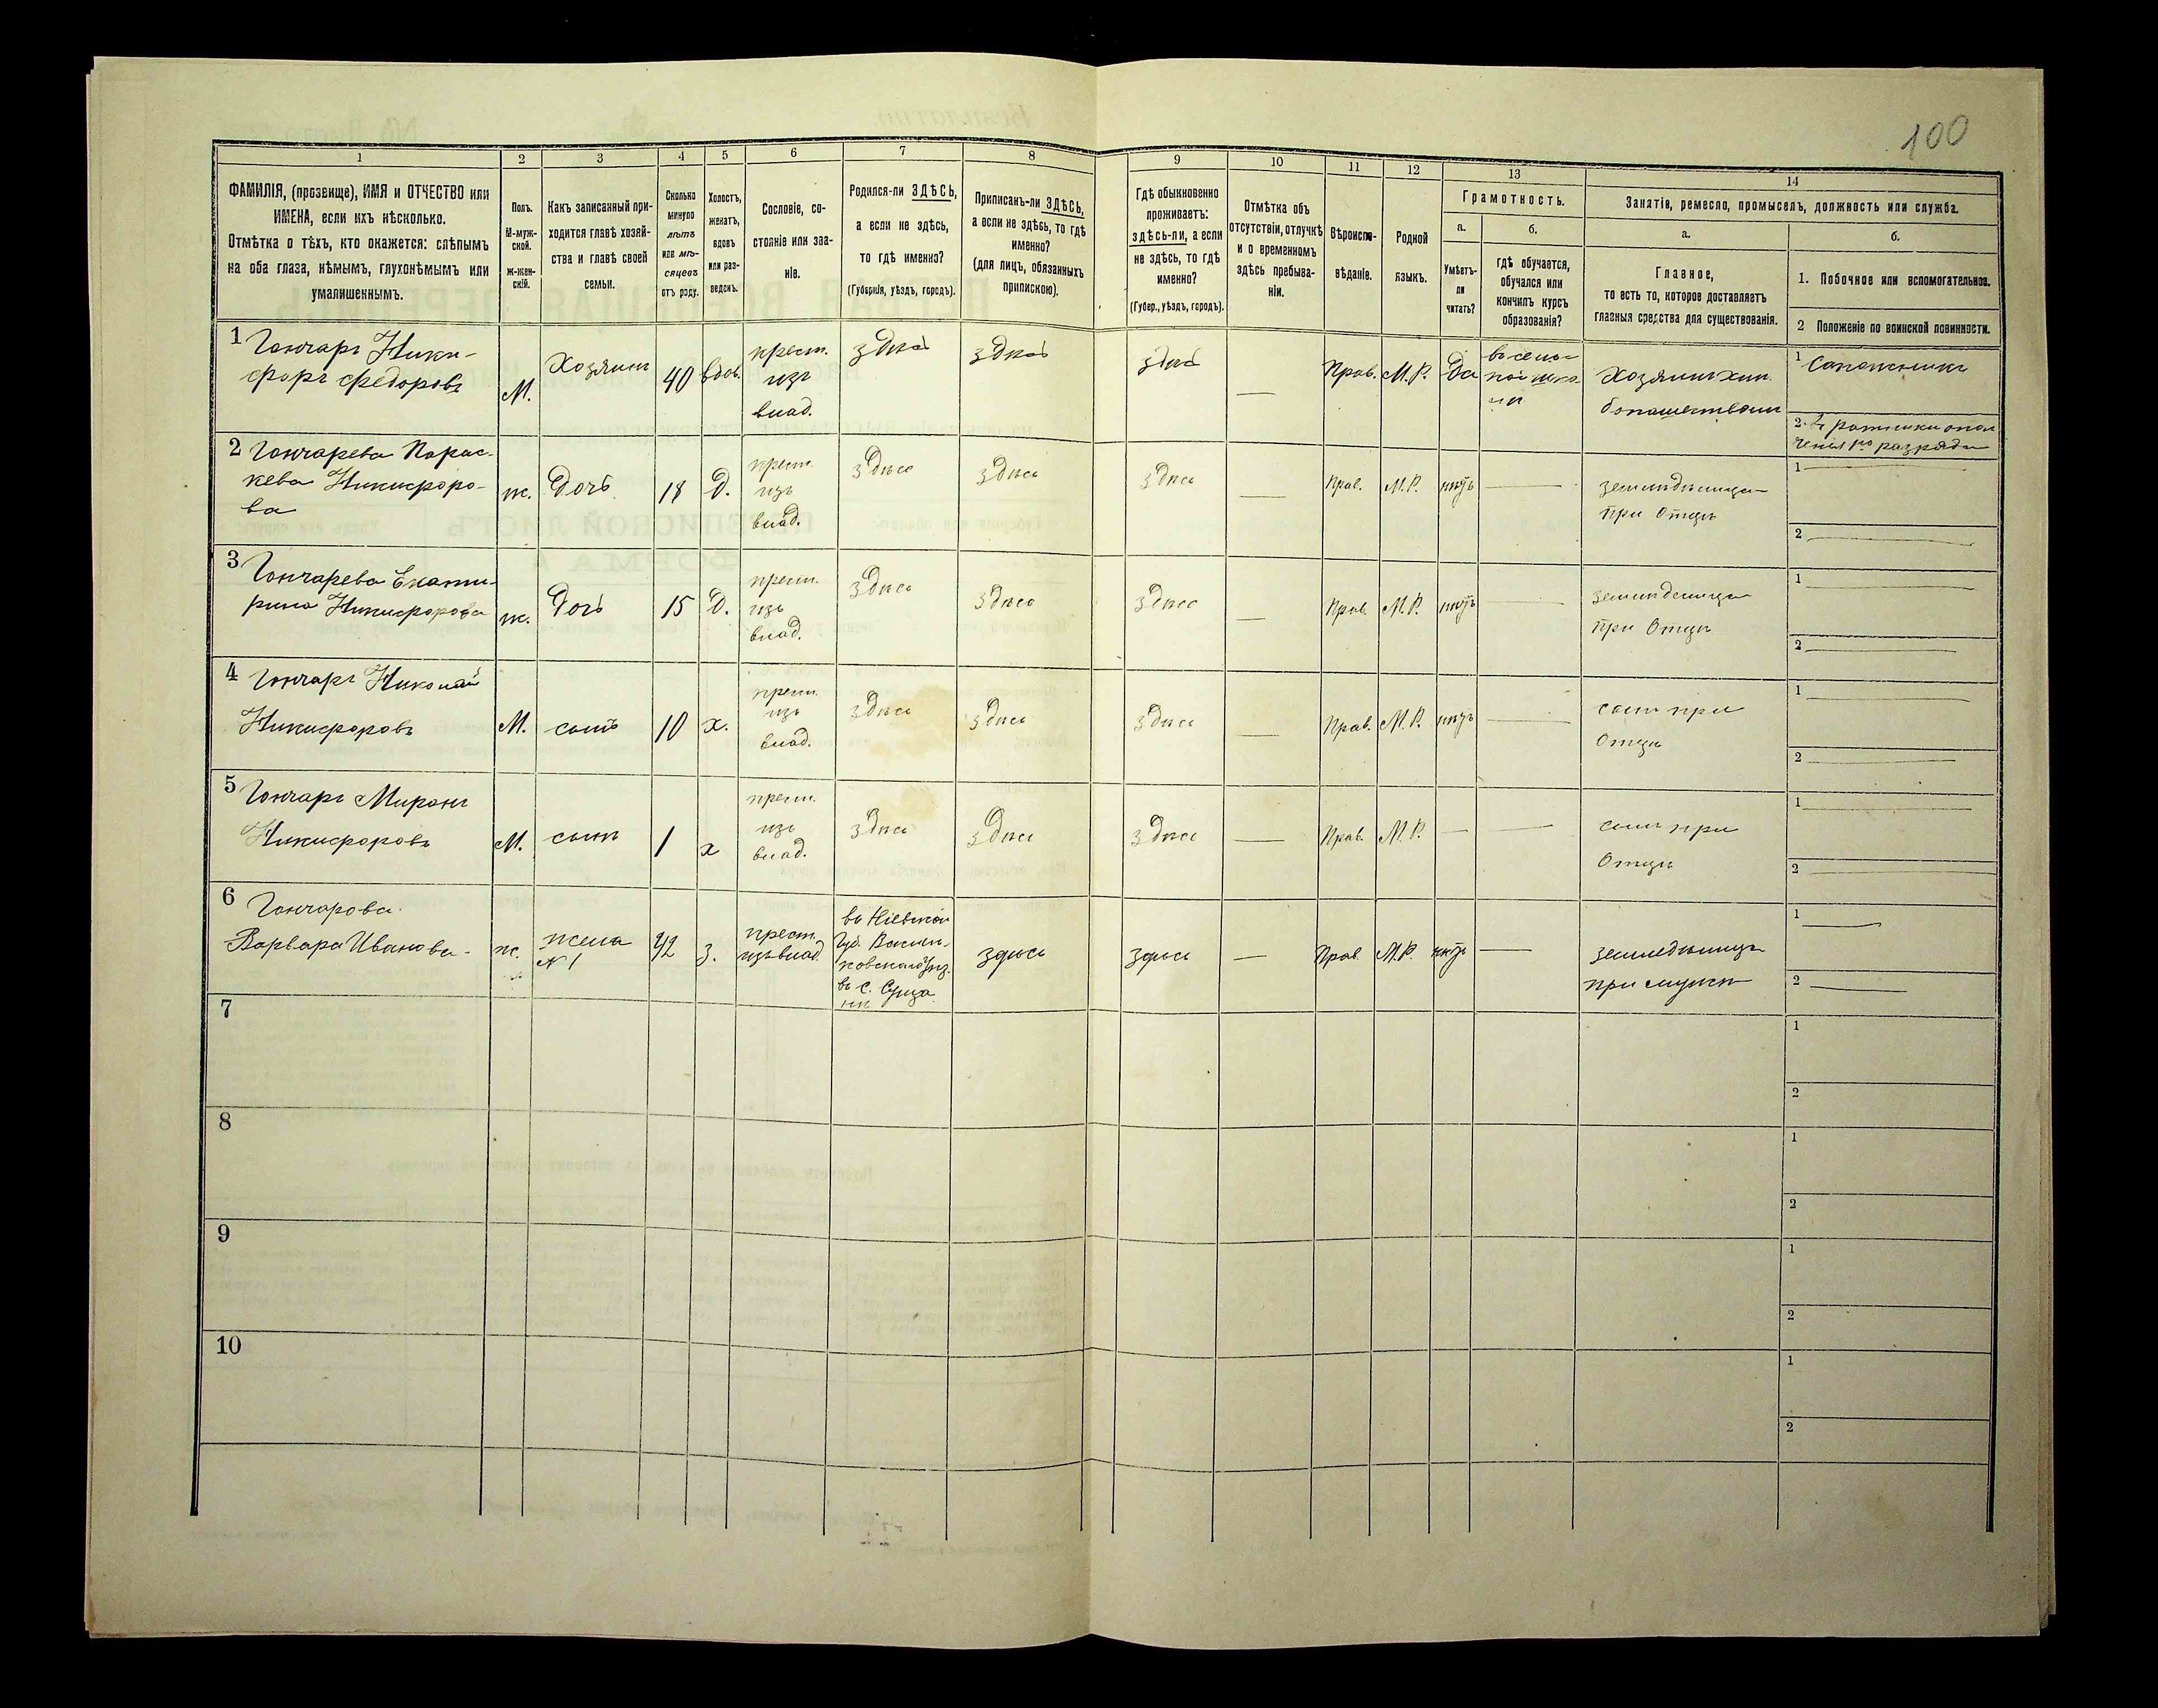 100
1 2 3 4 5 6 7 8 9 10 11 12 13 14
ФАМИЛІЯ, (прозвище), ИМЯ и ОТЧЕСТВО или
ИМЕНА, если ихъ нѣсколько.
Отмѣтка о тѣхъ, кто окажется: слѣпымъ
на оба глаза, нѣмымъ, глухонѣмымъ или
умалишеннымъ.
Полъ.
М-муж-
ской.
ж-жен-
скій.
Какъ записанный при-
ходится главѣ хозяй-
ства и главѣ своей
семьи.
Сколько
минуло
лѣтъ
или мѣ-
сяцевъ
отъ роду.
Холостъ,
женатъ,
вдовъ
или раз-
веденъ.
Сословіе, со-
стояніе или зва-
ніе.
Родился-ли ЗДѢСЬ,
а если не здѣсь,
то гдѣ именно?
(Губернія, уѣздъ, городъ).
Приписанъ-ли ЗДѢСЬ,
а если не здѣсь, то гдѣ
именно?
(для лицъ, обязанныхъ
припискою).
Гдѣ обыкновенно
проживаетъ:
здѣсь-ли, а если
не здѣсь, то гдѣ
именно?
(Губер., уѣздъ, городъ).
Отмѣтка объ
отсутствіи, отлучкѣ
и о временномъ
здѣсь пребыва-
ніи.
Вѣроиспо-
вѣданіе.
Родной
языкъ.
Грамотность.
а.
Умѣетъ-
ли
читать?
б.
Гдѣ обучается,
обучался или
кончилъ курсъ
образованія?
Занятіе, ремесло, промыселъ, должность или служба.
а.
Главное,
то есть то, которое доставляетъ
главныя средства для существованія.
б.
1. Побочное или вспомогательное.
2 Положеніе по воинской повинности.
1 Гончаръ Ники-
форъ Федоровъ
М.
Хозяинъ
40
вдов.
крест.
изъ
влад.
здѣсь
здѣсь
здѣсь
—
Прав.
М.Р.
Да
въ сель-
ской шко-
лѣ
Хозяинъ хлѣ
бопашествомъ
1 Сапожникъ
2 ратники опол
ченія разряда
2 Гончарева Парас-
кева Никифоро-
ва
ж.
Дочь
18
Д.
крест.
изъ
влад.
здѣсь
здѣсь
здѣсь
—
Прав.
М.Р.
нѣтъ
—
земледѣлица
при Отцѣ
1 —
2 —
3 Гончарева Екате-
рина Никифорова
ж.
Дочь
15
Д.
крест.
изъ
влад.
здѣсь
здѣсь
здѣсь
—
Прав.
М.Р.
нѣтъ
—
земледѣлица
при Отцѣ
1 —
2 —
4 Гончаръ Николай
Никифоровъ
М.
сынъ
10
х.
крест.
изъ
влад.
здѣсь
здѣсь
здѣсь
—
Прав.
М.Р.
нѣтъ
—
сынъ при
Отцѣ
1 —
2 —
5 Гончаръ Миронъ
Никифоровъ
М.
сынъ
1
х
крест.
изъ
влад.
здѣсь
здѣсь
здѣсь
—
Прав.
М.Р.
—
—
сынъ при
Отцѣ
1 —
2 —
6 Гончарова
Варвара Иванова
ж.
жена
N 1
42
з.
крест.
изъ влад.
въ Кіевской
Губ. Василь-
ковскаго уѣз.
въ с.
здѣсь
здѣсь
—
Прав.
М.Р.
нѣтъ
—
земледѣлица
при мужѣ
1 —
2 —
7
1
2
8
1
2
9
1
2
10
1
2